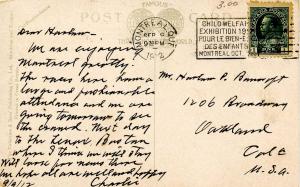 3.00
POST CARD
Dear Harlow -
We are enjoying
Montreal greatly.
The races here have a
large and fashionable
attendance and we are
going tomorrow to see
the crowd. Next day
to the Lenox Boston
where I think we will stay
Will close for now
We hope all are well and happy
9/9/12 Charlie
MONTREAL, QUE.
SEP 9
9 PM
1912
CHILD WELFARE
EXHIBITION 1912
POUR LE BIEN-E
DES ENFANTS
MONTREAL OCT.
Mr. Harlow P. Bancroft
1206 Broadway
Oakland
Cal
U.S.A.